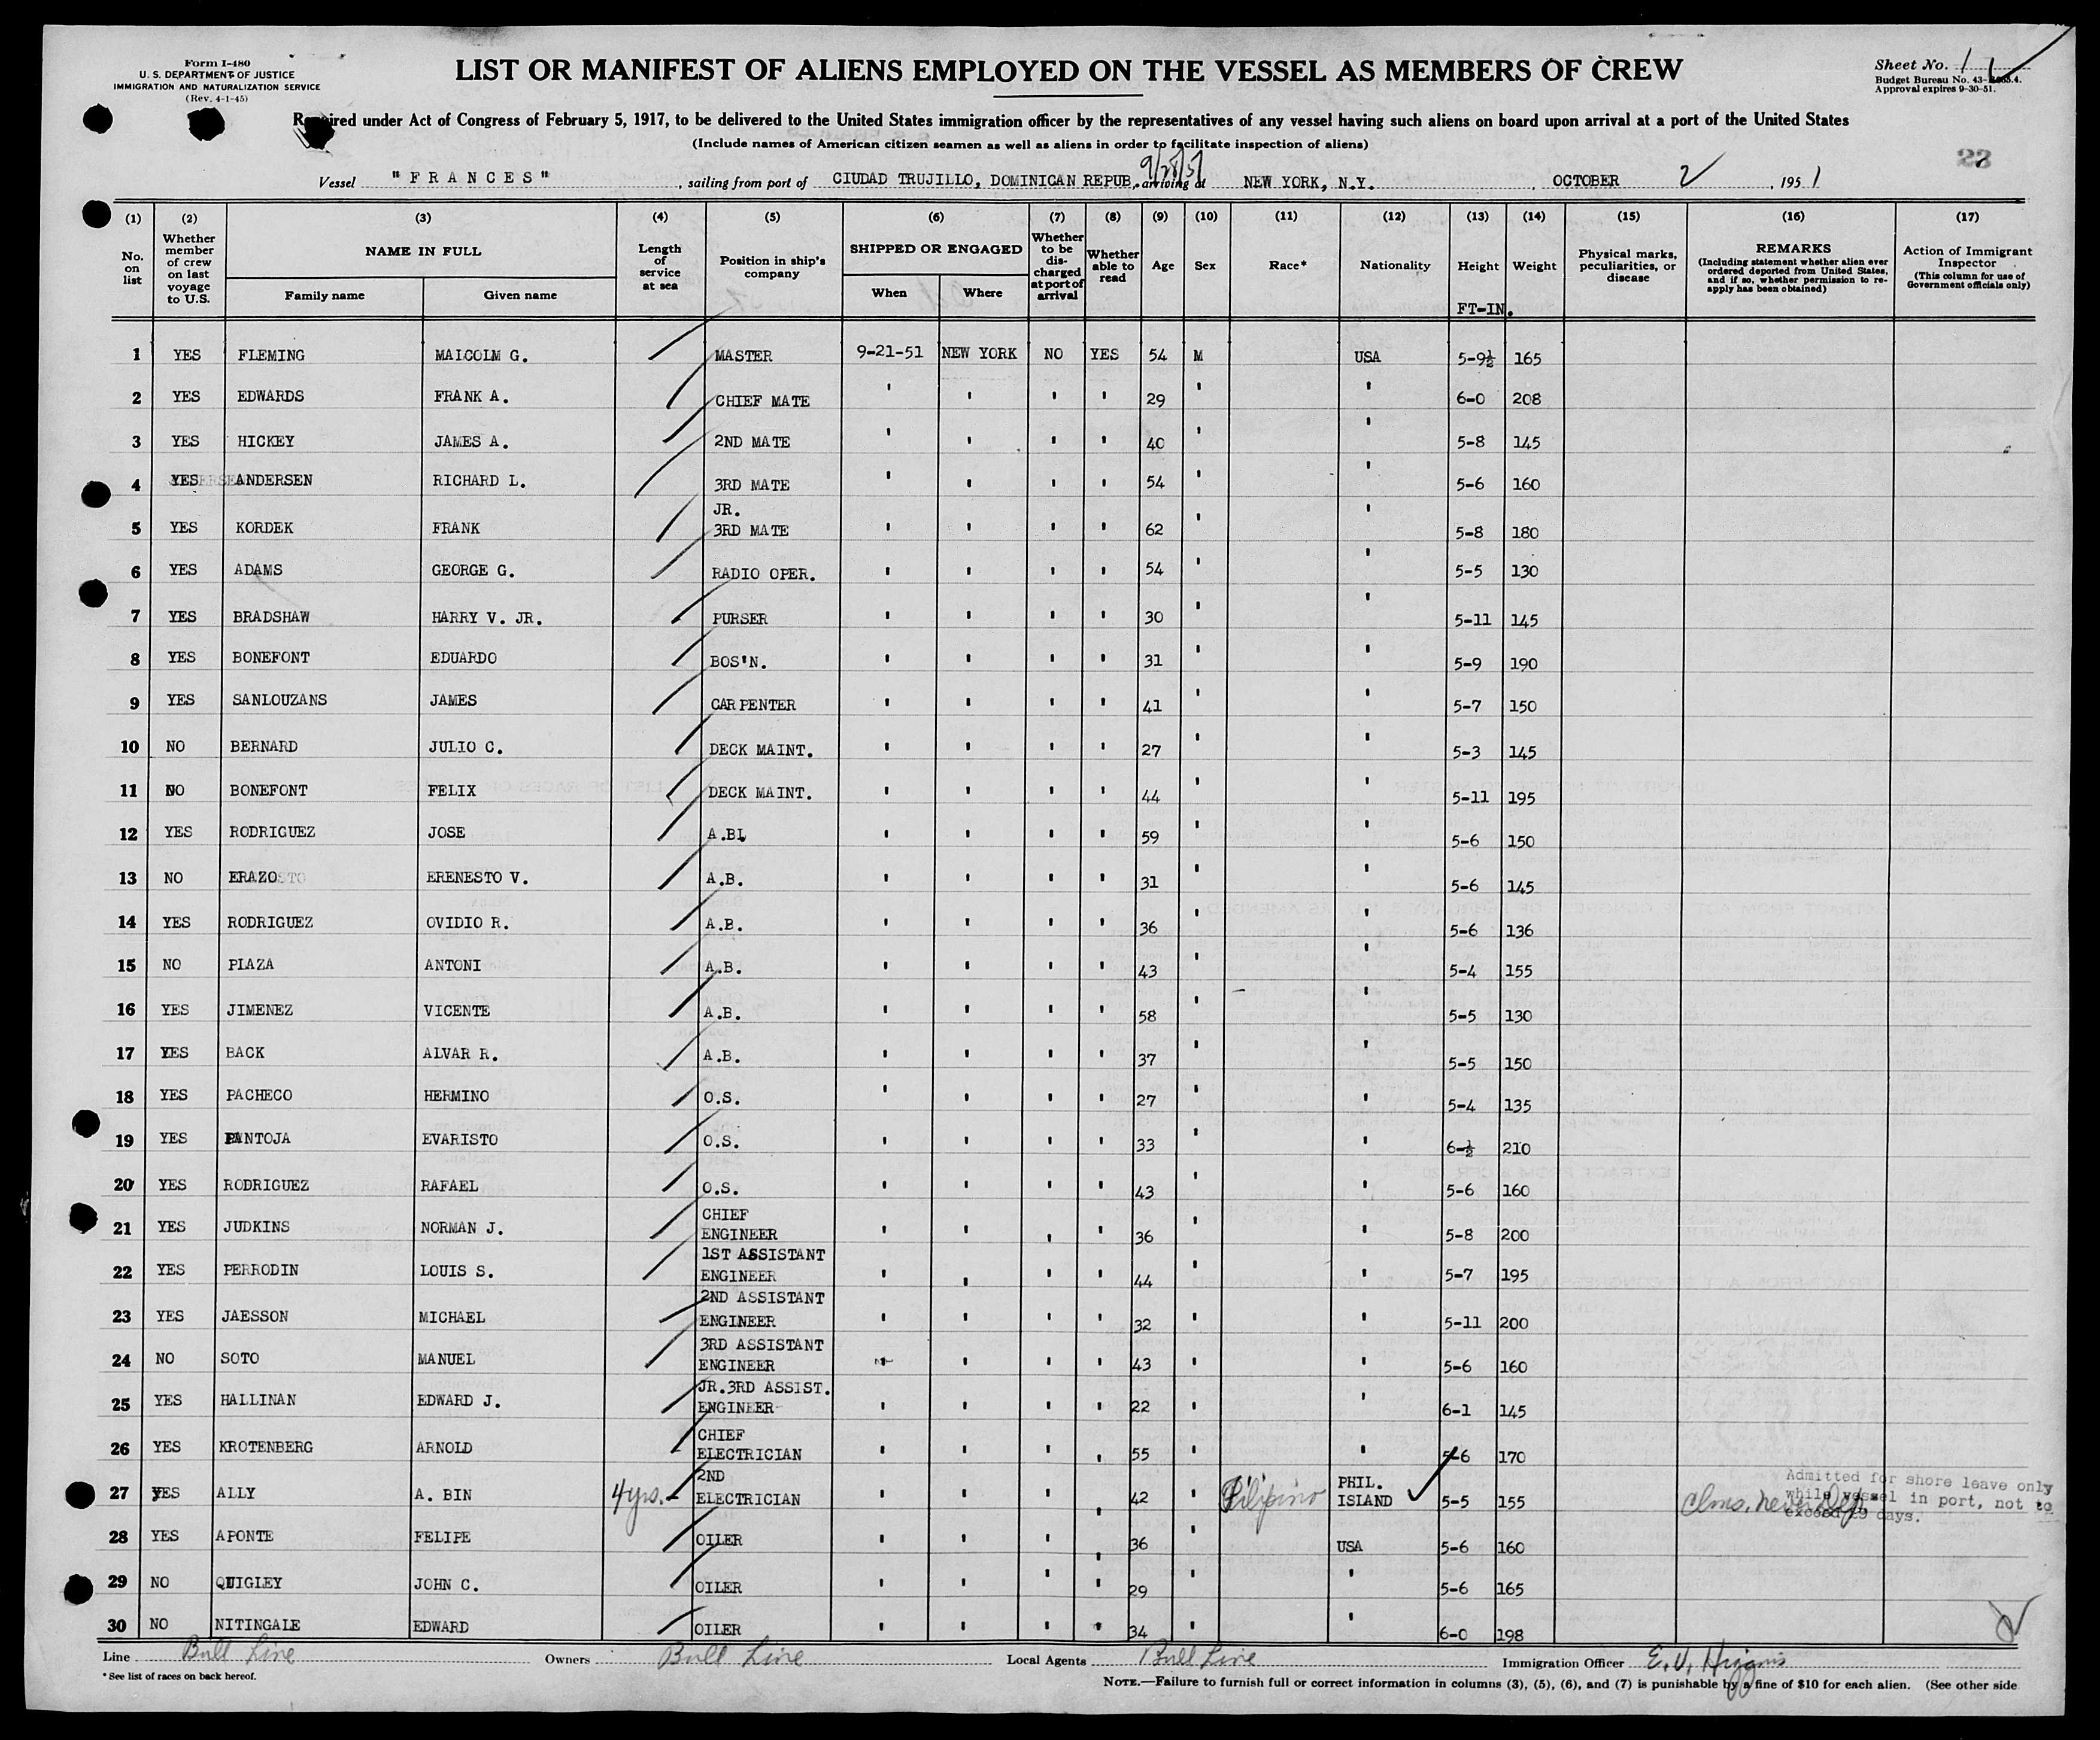 Form I-480
U. S. DEPARTMENT OF JUSTICE
IMMIGRATION AND NATURALIZATION SERVICE
(Rev. 4-1-45)
LIST OR MANIFEST OF ALIENS EMPLOYED ON THE VESSEL AS MEMBERS OF CREW
Sheet No. 1
Budget Bureau No. 43-
Approval expires 9-30-51.
Required under Act of Congress of February 5, 1917, to be delivered to the United States immigration officer by the representatives of any vessel having such aliens on board upon arrival at a port of the United States
(Include names of American citizen seamen as well as aliens in order to facilitate inspection of aliens)
9/28/51
Vessel "FRANCES", sailing from port of CIUDAD TRUJILLO, DOMINICAN REPUB. arriving at NEW YORK, N.Y., OCTOBER 2, 1951
(1) (2) (3) (4) (5) (6) (7) (8) (9) (10) (11) (12) (13) (14) (15) (16) (17)
No. on list
Whether member of crew on last voyage to U.S.
NAME IN FULL
Family name Given name
Length of service at sea
Position in ship's company
SHIPPED OR ENGAGED
When Where
Whether to be discharged at port of arrival
Whether able to read
Age
Sex
Race*
Nationality
Height
FT-IN.
Weight
Physical marks, peculiarities, or disease
REMARKS
(Including statement whether alien ever ordered deported from United States, and if so, whether permission to re-apply has been obtained)
Action of Immigrant Inspector
(This column for use of Government officials only)
1 YES FLEMING MALCOLM G. MASTER 9-21-51 NEW YORK NO YES 54 M USA 5-9½ 165
2 YES EDWARDS FRANK A. CHIEF MATE ' ' ' ' 29 ' ' 6-0 208
3 YES HICKEY JAMES A. 2ND MATE ' ' ' ' 40 ' ' 5-8 145
4 YES ANDERSEN RICHARD L. 3RD MATE ' ' ' ' 54 ' ' 5-6 160
5 YES KORDEK FRANK JR. 3RD MATE ' ' ' ' 62 ' ' 5-8 180
6 YES ADAMS GEORGE G. RADIO OPER. ' ' ' ' 54 ' ' 5-5 130
7 YES BRADSHAW HARRY V. JR. PURSER ' ' ' ' 30 ' ' 5-11 145
8 YES BONEFONT EDUARDO BOS'N. ' ' ' ' 31 ' ' 5-9 190
9 YES SANLOUZANS JAMES CARPENTER ' ' ' ' 41 ' ' 5-7 150
10 NO BERNARD JULIO C. DECK MAINT. ' ' ' ' 27 ' ' 5-3 145
11 NO BONEFONT FELIX DECK MAINT. ' ' ' ' 44 ' ' 5-11 195
12 YES RODRIGUEZ JOSE A.B. ' ' ' ' 59 ' ' 5-6 150
13 NO ERAZO ERENESTO V. A.B. ' ' ' ' 31 ' ' 5-6 145
14 YES RODRIGUEZ OVIDIO R. A.B. ' ' ' ' 36 ' ' 5-6 136
15 NO PLAZA ANTONI A.B. ' ' ' ' 43 ' ' 5-4 155
16 YES JIMENEZ VICENTE A.B. ' ' ' ' 58 ' ' 5-5 130
17 YES BACK ALVAR R. A.B. ' ' ' ' 37 ' ' 5-5 150
18 YES PACHECO HERMINO O.S. ' ' ' ' 27 ' ' 5-4 135
19 YES PANTOJA EVARISTO O.S. ' ' ' ' 33 ' ' 6-½ 210
20 YES RODRIGUEZ RAFAEL O.S. ' ' ' ' 43 ' ' 5-6 160
21 YES JUDKINS NORMAN J. CHIEF ENGINEER ' ' ' ' 36 ' ' 5-8 200
22 YES PERRODIN LOUIS S. 1ST ASSISTANT ENGINEER ' ' ' ' 44 ' ' 5-7 195
23 YES JAESSON MICHAEL 2ND ASSISTANT ENGINEER ' ' ' ' 32 ' ' 5-11 200
24 NO SOTO MANUEL 3RD ASSISTANT ENGINEER ' ' ' ' 43 ' ' 5-6 160
25 YES HALLINAN EDWARD J. JR.3RD ASSIST. ENGINEER ' ' ' ' 22 ' ' 6-1 145
26 YES KROTENBERG ARNOLD CHIEF ELECTRICIAN ' ' ' ' 55 ' ' 5-6 170
27 YES ALLY A. BIN 4 yrs. 2ND ELECTRICIAN ' ' ' ' 42 ' Filipino PHIL. ISLAND 5-5 155 Clms. never dep. Admitted for shore leave only while vessel in port, not to exceed 29 days.
28 YES APONTE FELIPE OILER ' ' ' ' 36 ' USA 5-6 160
29 NO QUIGLEY JOHN C. OILER ' ' ' ' 29 ' ' 5-6 165
30 NO NITINGALE EDWARD OILER ' ' ' ' 34 ' ' 6-0 198
Line Bull Line Owners Bull Line Local Agents Bull Line Immigration Officer E. V. Higgins
* See list of races on back hereof.
NOTE.—Failure to furnish full or correct information in columns (3), (5), (6), and (7) is punishable by a fine of $10 for each alien. (See other side